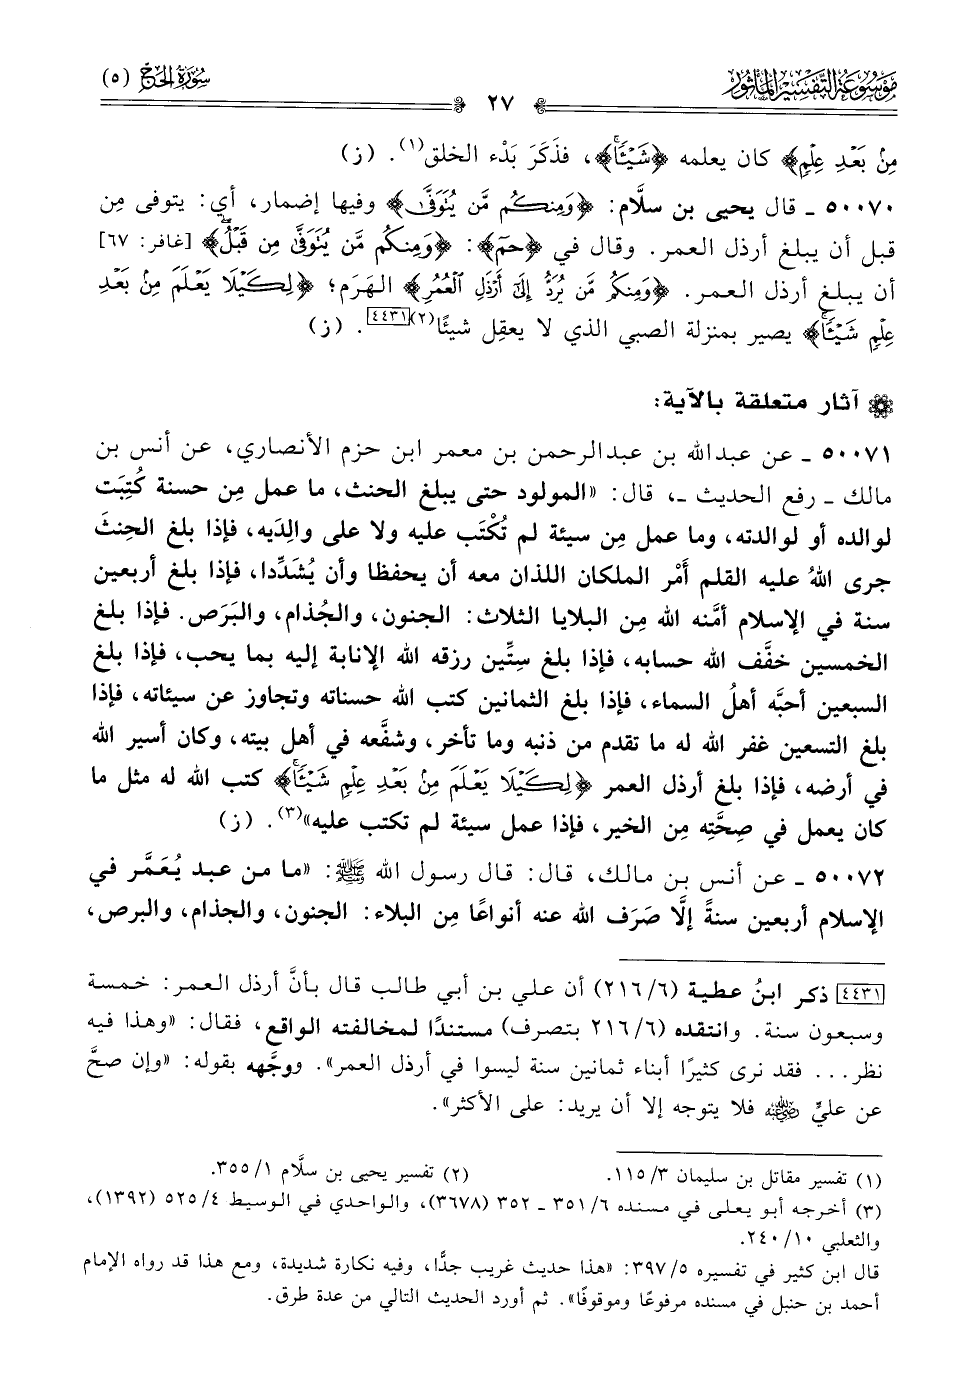 مَوْسُوعَةُ التَّفْسِيْرِ المَأْثُورِ
٢٧
سُورَةُ الحَجّ (٥)
مِنْ بَعْدِ عِلْمٍ﴾ كان يعلمه ﴿شَيْئًا﴾، فذَكَرَ بَدْء الخلق(١). (ز)
٥٠٠٧٠ ـ قال يحيى بن سلَّام: ﴿وَمِنكُم مَّن يُتَوَفَّىٰ﴾ وفيها إضمار، أي: يتوفى مِن
قبل أن يبلغ أرذل العمر. وقال في ﴿حمٓ﴾: ﴿وَمِنكُم مَّن يُتَوَفَّىٰ مِن قَبْلُ﴾ [غافر: ٦٧]
أن يبلغ أرذل العمر. ﴿وَمِنكُم مَّن يُرَدُّ إِلَىٰٓ أَرْذَلِ ٱلْعُمُرِ﴾ الهَرَم؛ ﴿لِكَيْلَا يَعْلَمَ مِنْ بَعْدِ
عِلْمٍ شَيْئًا﴾ يصير بمنزلة الصبي الذي لا يعقِل شيئًا(٢)[٤٤٣١]. (ز)
آثار متعلقة بالآية:
٥٠٠٧١ ـ عن عبدالله بن عبدالرحمن بن معمر ابن حزم الأنصاري، عن أنس بن
مالك ـ رفع الحديث ـ، قال: «المولود حتى يبلغ الحنث، ما عمل مِن حسنة كُتِبَت
لوالده أو لوالدته، وما عمل مِن سيئة لم تُكْتَب عليه ولا على والِدَيه، فإذا بلغ الحِنثَ
جرى اللهُ عليه القلم أَمْر الملكان اللذان معه أن يحفظا وأن يُشَدِّدا، فإذا بلغ أربعين
سنة في الإسلام أمَّنه الله مِن البلايا الثلاث: الجنون، والجُذام، والبَرَص. فإذا بلغ
الخمسين خفَّف الله حسابه، فإذا بلغ سِتِّين رزقه الله الإنابة إليه بما يحب، فإذا بلغ
السبعين أحبَّه أهلُ السماء، فإذا بلغ الثمانين كتب الله حسناته وتجاوز عن سيئاته، فإذا
بلغ التسعين غفر الله له ما تقدم من ذنبه وما تأخر، وشفَّعه في أهل بيته، وكان أسير الله
في أرضه، فإذا بلغ أرذل العمر ﴿لِكَيْلَا يَعْلَمَ مِنْ بَعْدِ عِلْمٍ شَيْئًا﴾ كتب الله له مثل ما
كان يعمل في صِحَّتِه مِن الخير، فإذا عمل سيئة لم تكتب عليه»(٣). (ز)
٥٠٠٧٢ ـ عن أنس بن مالك، قال: قال رسول الله ﷺ: «ما من عبد يُعَمَّر في
الإسلام أربعين سنةً إلَّا صَرَف الله عنه أنواعًا مِن البلاء: الجنون، والجذام، والبرص،
[٤٤٣١] ذكر ابنُ عطية (٦/ ٢١٦) أن علي بن أبي طالب قال بأنَّ أرذل العمر: خمسة
وسبعون سنة. وانتقده (٦/ ٢١٦ بتصرف) مستندًا لمخالفته الواقع، فقال: «وهذا فيه
نظر... فقد نرى كثيرًا أبناء ثمانين سنة ليسوا في أرذل العمر». ووجَّهه بقوله: «وإن صحَّ
عن عليٍّ رضي الله عنه فلا يتوجه إلا أن يريد: على الأكثر».
(١) تفسير مقاتل بن سليمان ٣/ ١١٥. (٢) تفسير يحيى بن سلَّام ١/ ٣٥٥.
(٣) أخرجه أبو يعلى في مسنده ٦/ ٣٥١ ـ ٣٥٢ (٣٦٧٨)، والواحدي في الوسيط ٤/ ٥٢٥ (١٣٩٢)،
والثعلبي ١٠/ ٢٤٠.
قال ابن كثير في تفسيره ٥/ ٣٩٧: «هذا حديث غريب جدًّا، وفيه نكارة شديدة، ومع هذا قد رواه الإمام
أحمد بن حنبل في مسنده مرفوعًا وموقوفًا». ثم أورد الحديث التالي من عدة طرق.